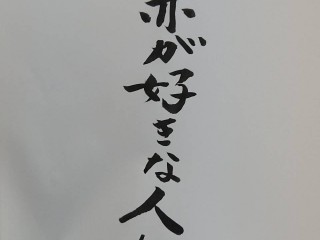 赤が好きな人